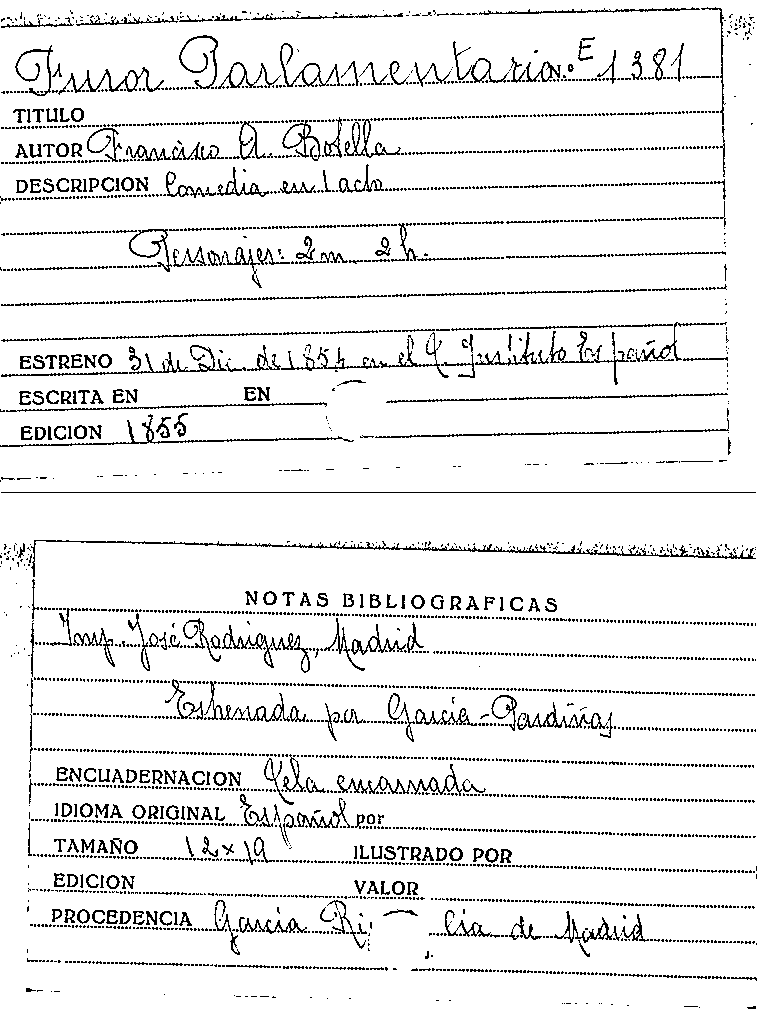 Furor Parlamentario N.º E 1381
TITULO
AUTOR Francisco A. Botella
DESCRIPCION Comedia en 1 acto
Personajes: 2 m 2 h.
ESTRENO 31 de Dic. de 1854 en el T. Instituto Español
ESCRITA EN EN
EDICION 1855
NOTAS BIBLIOGRAFICAS
Imp. José Rodriguez, Madrid
Estrenada por García-Pardiñas
ENCUADERNACION Tela encarnada
IDIOMA ORIGINAL Español por
TAMAÑO 12 x 19 ILUSTRADO POR
EDICION VALOR
PROCEDENCIA García Ri cia de Madrid